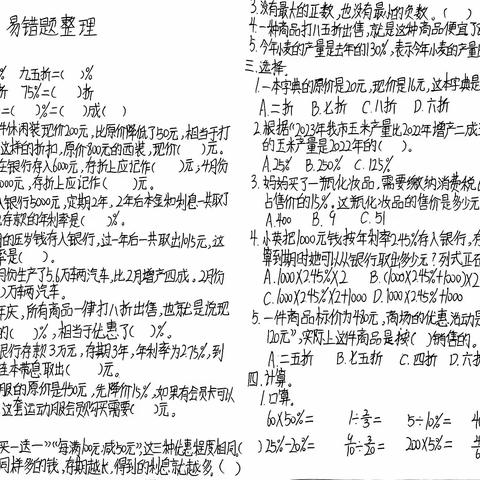 易错题整理
% 九五折=( )%
折 75%=( )折
=( )%=( )成( )
件休闲装现价200元,比原价降低了50元,相当于打
这样的折扣,原价800元的西装,现价( )元。
在银行存入6000元,存折上应记作( )元;4月份
000元,存折上应记作( )元。
入银行5000元,定期2年。2年后本金和利息一共取了
存款的年利率是( )%。
的压岁钱存入银行,过一年后一共取出1015元,这
率是( )。
月份生产了5.6万辆汽车,比2月增产四成。2月份
万辆汽车。
年庆,所有商品一律打八折出售,也就是说现
的( )%,相当于优惠了( )%。
银行存款3万元,存期3年,年利率为2.75%,到
连本带息取出( )元。
服的原价是450元,先降价15%,如果有会员卡可以
这套运动服会员购买需要( )元。
买一送一”“每满100元减50元”这三种优惠程度相同( )
同样多的钱,存期越长,得到的利息就越多。( )
3.没有最大的正数,也没有最小的负数。( )
4.一种商品打八五折出售,就是这种商品便宜了
5.今年小麦的产量是去年的130%,表示今年小麦的产量
三.选择。
1.一本字典的原价是20元,现价是16元,这本字典是
A.二折 B.七折 C.八折 D.六折
2.根据“2023年我市玉米产量比2022年增产二成五
的玉米产量是2022年的( )。
A.25% B.250% C.125%
3.妈妈买了一瓶化妆品,需要缴纳消费税
占售价的15%。这瓶化妆品的售价是多少元
A.400 B.9 C.51
4.小英把1000元钱按年利率2.45%存入银行,存
算到期时她可以从银行取出多少元?列式正
A.1000×2.45%×2 B.(1000×2.45%+1000)×2
C.1000×2.45%×2+1000 D.1000×2.45%+1000
5.一件商品标价为480元,商场的优惠活动是
120元”,实际上这件商品是按( )销售的。
A.二五折 B.七五折 C.四折 D.六折
四.计算。
1.口算。
60×50%= 1÷2/3= 5÷10%=
25%-20%= 200×5%=